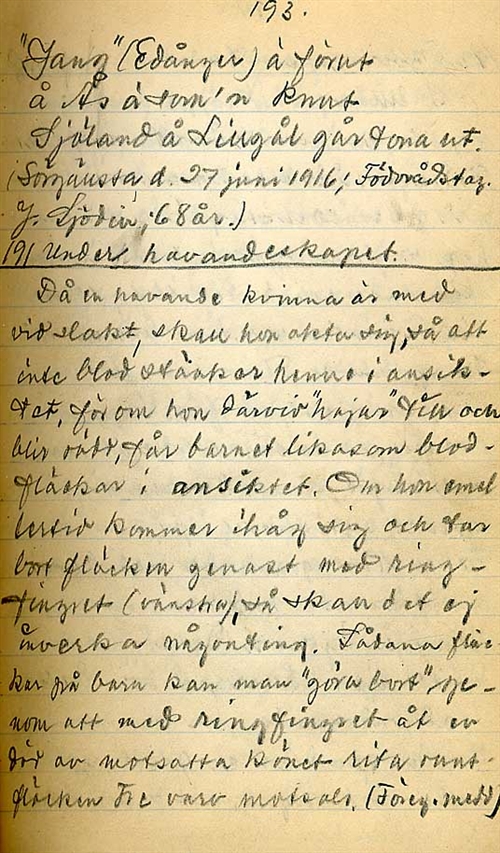 193.
"Jang" (Edånger) å förut
å Ås å som 'n Knut
Sjöland å Liugål går tona ut.
d. 27 juni 1916; Födorådstag.
J. Sjödin, 68 år.)
191 Under havandeskapet.
Då en havande kvinna är med
vid slakt, skall hon akta sig, så att
inte blod stänker henne i ansik-
tet, för om hon därvid "hajar" till och
blir rädd, får barnet likasom blod-
fläckar i ansiktet. Om hon emel
lertid kommer ihåg sig och tar
bort fläcken genast med ring-
fingret (vänstra), så skall det ej
inverka någonting. Sådana fläc-
kar på barn kan man "göra bort", ge-
nom att med ringfingret åt en
död av motsatta könet rita runt
fläcken tre varv motsols. (Föreg. medd)